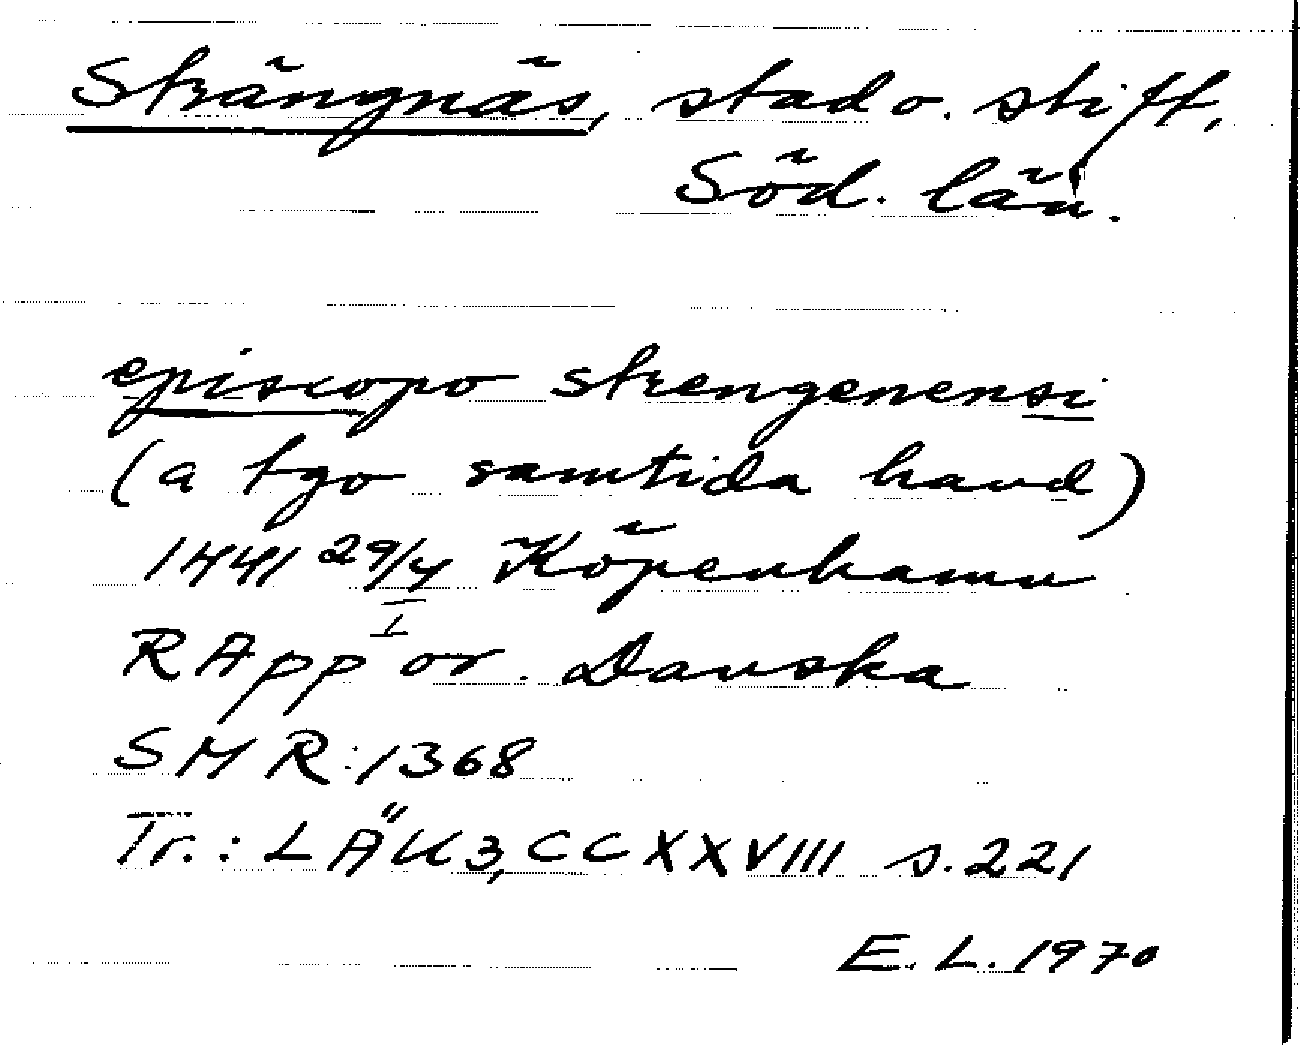 Strängnäs, stad o. stift,
Söd. län.
episcopo strengenensi
(a tgo samtida hand)
1441 29/4 Köpenhamn
RApp or. Danska I
SMR: 1368
Tr.: LÄU 3, CCXXVIII s. 221
E. L. 1970